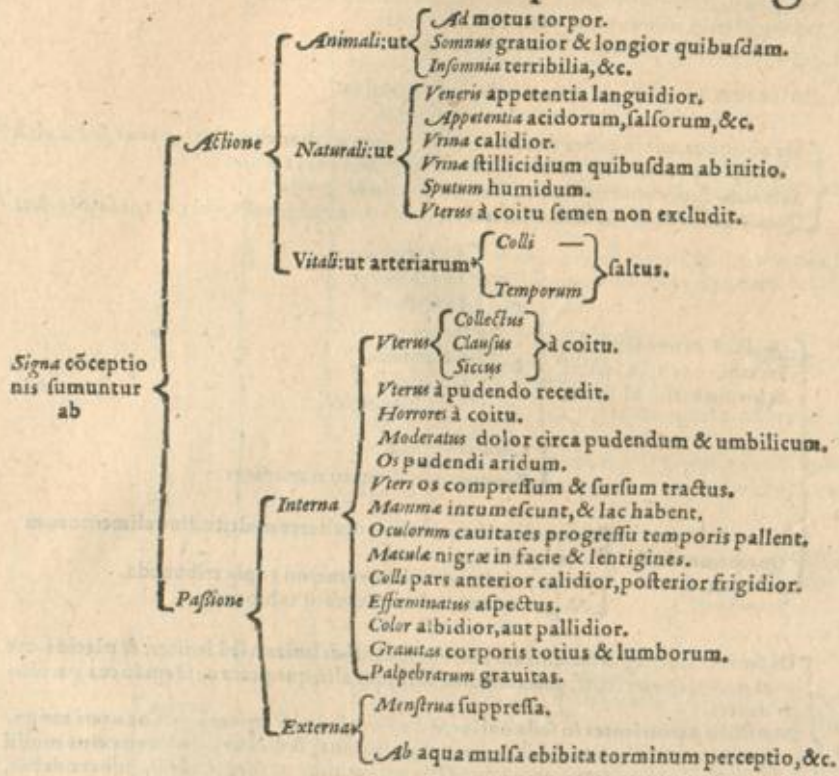 Signa cõceptio
nis ſumuntur
ab
Actione
Animali:ut
Ad motus torpor.
Somnus grauior & longior quibuſdam.
Inſomnia terribilia,&c.
Naturali:ut
Veneris appetentia languidior.
Appetentia acidorum,ſalſorum,&c.
Vrina calidior.
Vrinæ ſtillicidium quibuſdam ab initio.
Sputum humidum.
Vterus à coitu ſemen non excludit.
Vitali:ut arteriarum
Colli —
Temporum
ſaltus.
Paſsione
Interna
Vterus
Collectus
Clauſus
Siccus
à coitu.
Vterus à pudendo recedit.
Horrores à coitu.
Moderatus dolor circa pudendum & umbilicum.
Os pudendi aridum.
Vteri os compreſſum & ſurſum tractus.
Mammæ intumeſcunt,& lac habent.
Oculorum cauitates progreſſu temporis pallent.
Maculæ nigræ in facie & lentigines.
Colli pars anterior calidior,poſterior frigidior.
Effœminatus aſpectus.
Color albidior,aut pallidior.
Grauitas corporis totius & lumborum.
Palpebrarum grauitas.
Externa
Menſtrua ſuppreſſa.
Ab aqua mulſa ebibita torminum perceptio,&c.